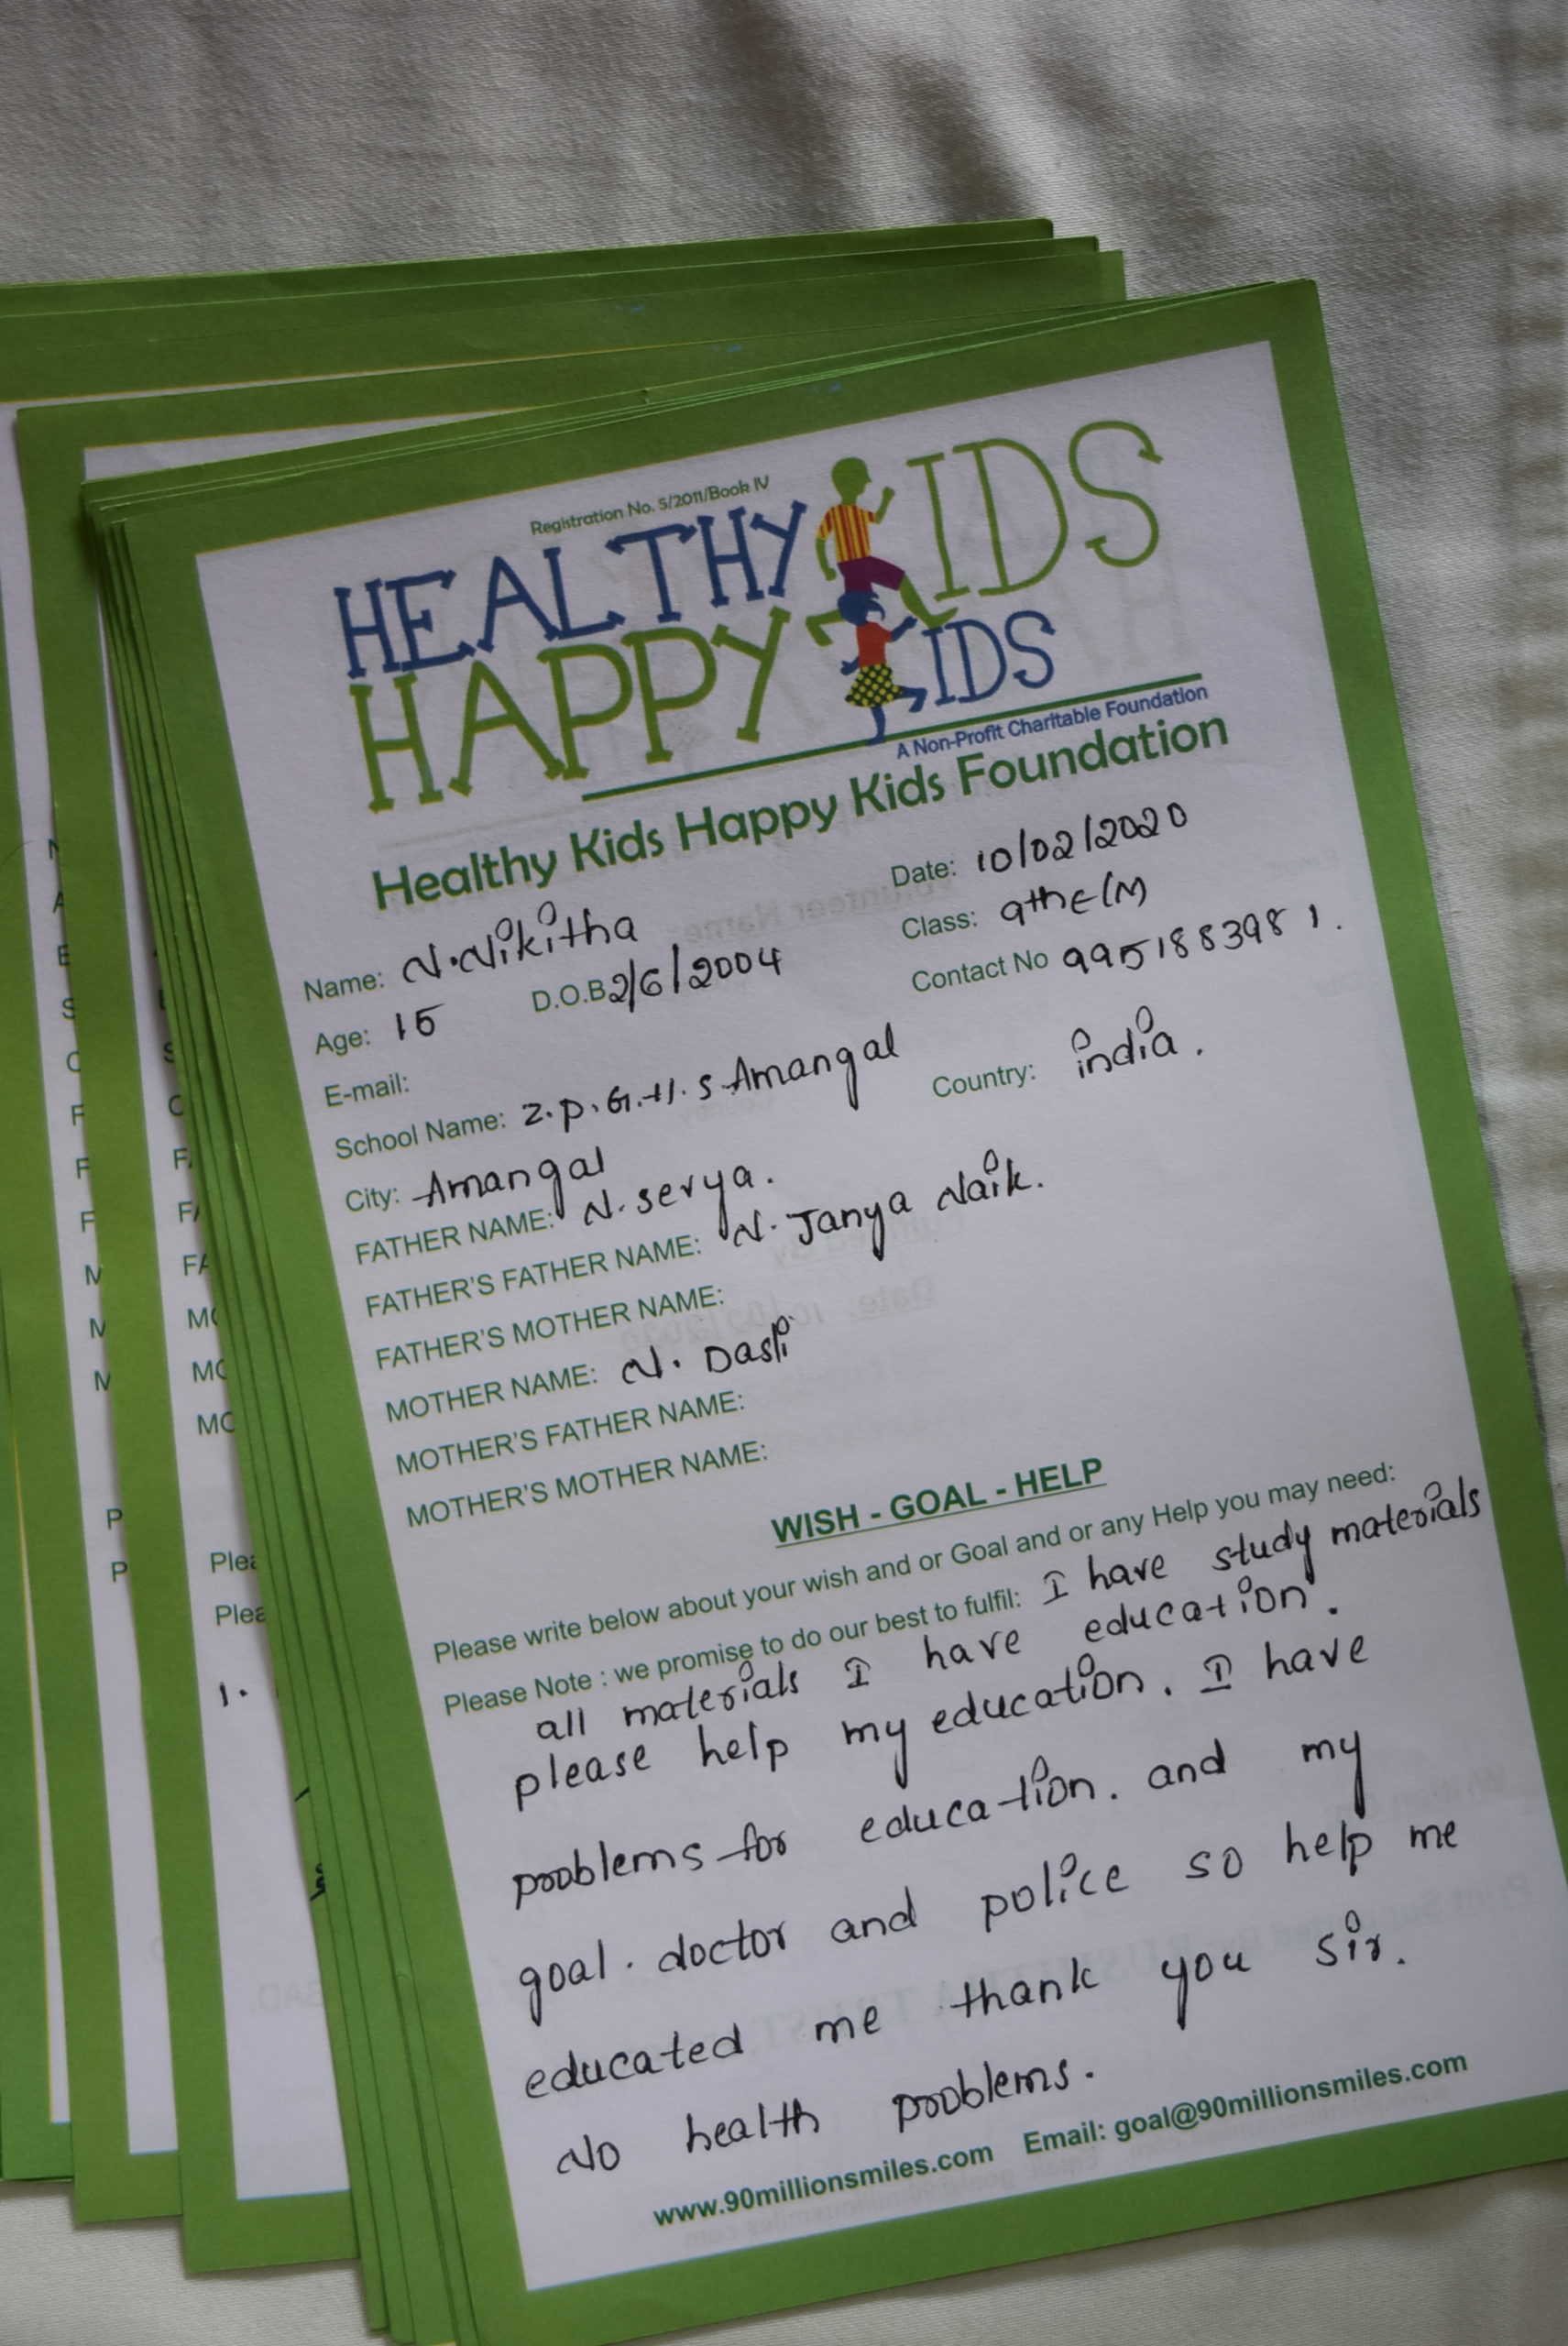 Registration No. 5/2011/Book IV
HEALTHY KIDS
HAPPY KIDS
A Non-Profit Charitable Foundation
Healthy Kids Happy Kids Foundation
Date: 10/02/2020
Name: N.Nikitha
Class: 9th E/M
Age: 15 D.O.B 2/6/2004
Contact No 9951883981.
E-mail:
School Name: Z.P.G.H.S Amangal
Country: india.
City: Amangal
FATHER NAME: N. serya.
FATHER'S FATHER NAME: N. Janya Naik.
FATHER'S MOTHER NAME:
MOTHER NAME: N. Dasli
MOTHER'S FATHER NAME:
MOTHER'S MOTHER NAME:
WISH - GOAL - HELP
Please write below about your wish and or Goal and or any Help you may need:
Please Note : we promise to do our best to fulfil: I have study materials
all materials I have education.
please help my education. I have
problems for education. and my
goal. doctor and police so help me
educated me thank you sir.
No health problems.
www.90millionsmiles.com Email: goal@90millionsmiles.com